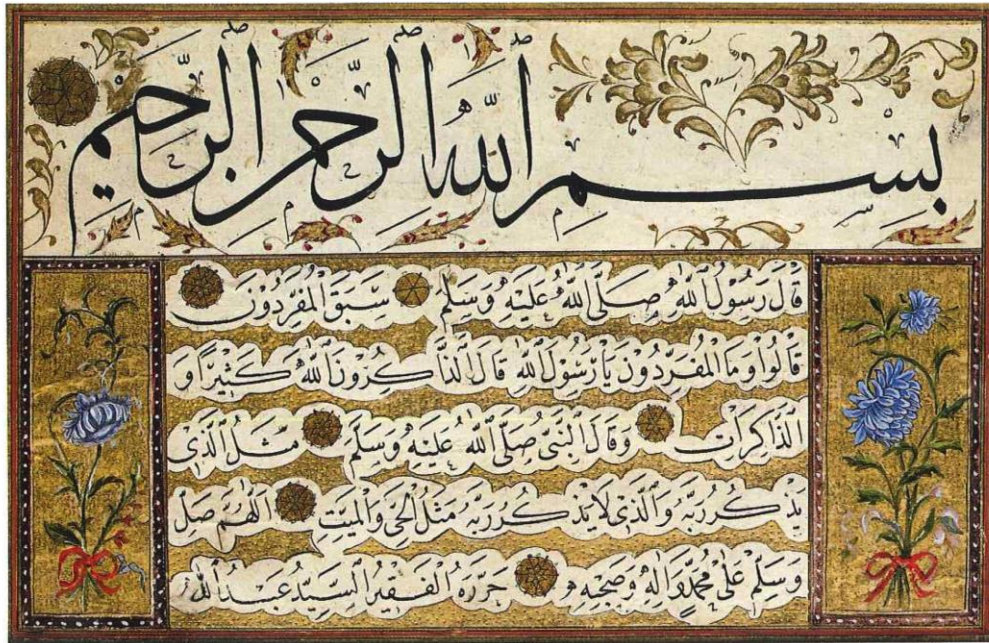 بِسْمِ اللهِ الرَّحْمٰنِ الرَّحِيمِ
قَالَ رَسُولُ اللهِ صَلَّى اللهُ عَلَيْهِ وَسَلَّمَ سَبَقَ الْمُفَرِّدُونَ
قَالُوا وَمَا الْمُفَرِّدُونَ يَا رَسُولَ اللهِ قَالَ الذَّاكِرُونَ اللهَ كَثِيرًا وَ
الذَّاكِرَاتِ وَقَالَ النَّبِيُّ صَلَّى اللهُ عَلَيْهِ وَسَلَّمَ مَثَلُ الَّذِي
يَذْكُرُ رَبَّهُ وَالَّذِي لَا يَذْكُرُ رَبَّهُ مَثَلُ الْحَيِّ وَالْمَيِّتِ اَللّٰهُمَّ صَلِّ
وَسَلِّمْ عَلَى مُحَمَّدٍ وَآلِهِ وَصَحْبِهِ حَرَّرَهُ الْفَقِيرُ السَّيِّدُ عَبْدُ اللهِ